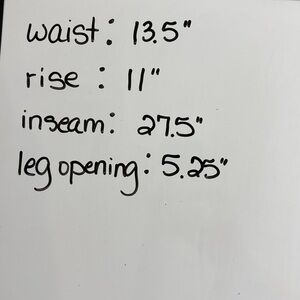 waist: 13.5"
rise: 11"
inseam: 27.5"
leg opening: 5.25"